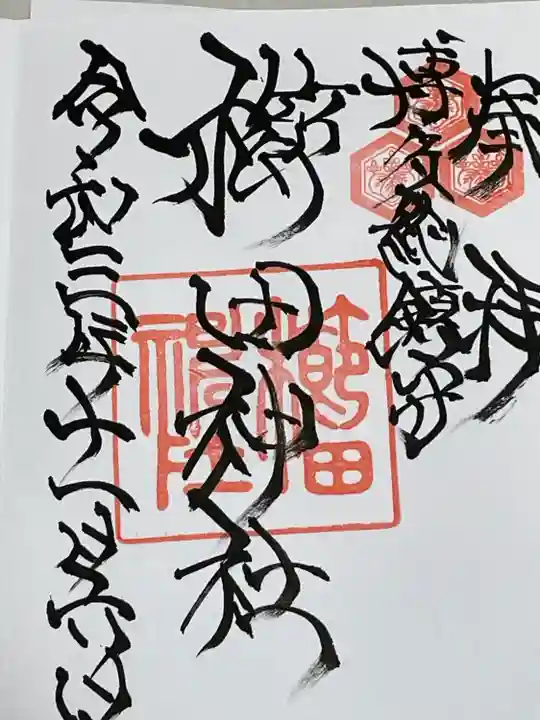 奉拝
博多総鎮守
櫛田神社
令和三年十一月六日
櫛田
神社